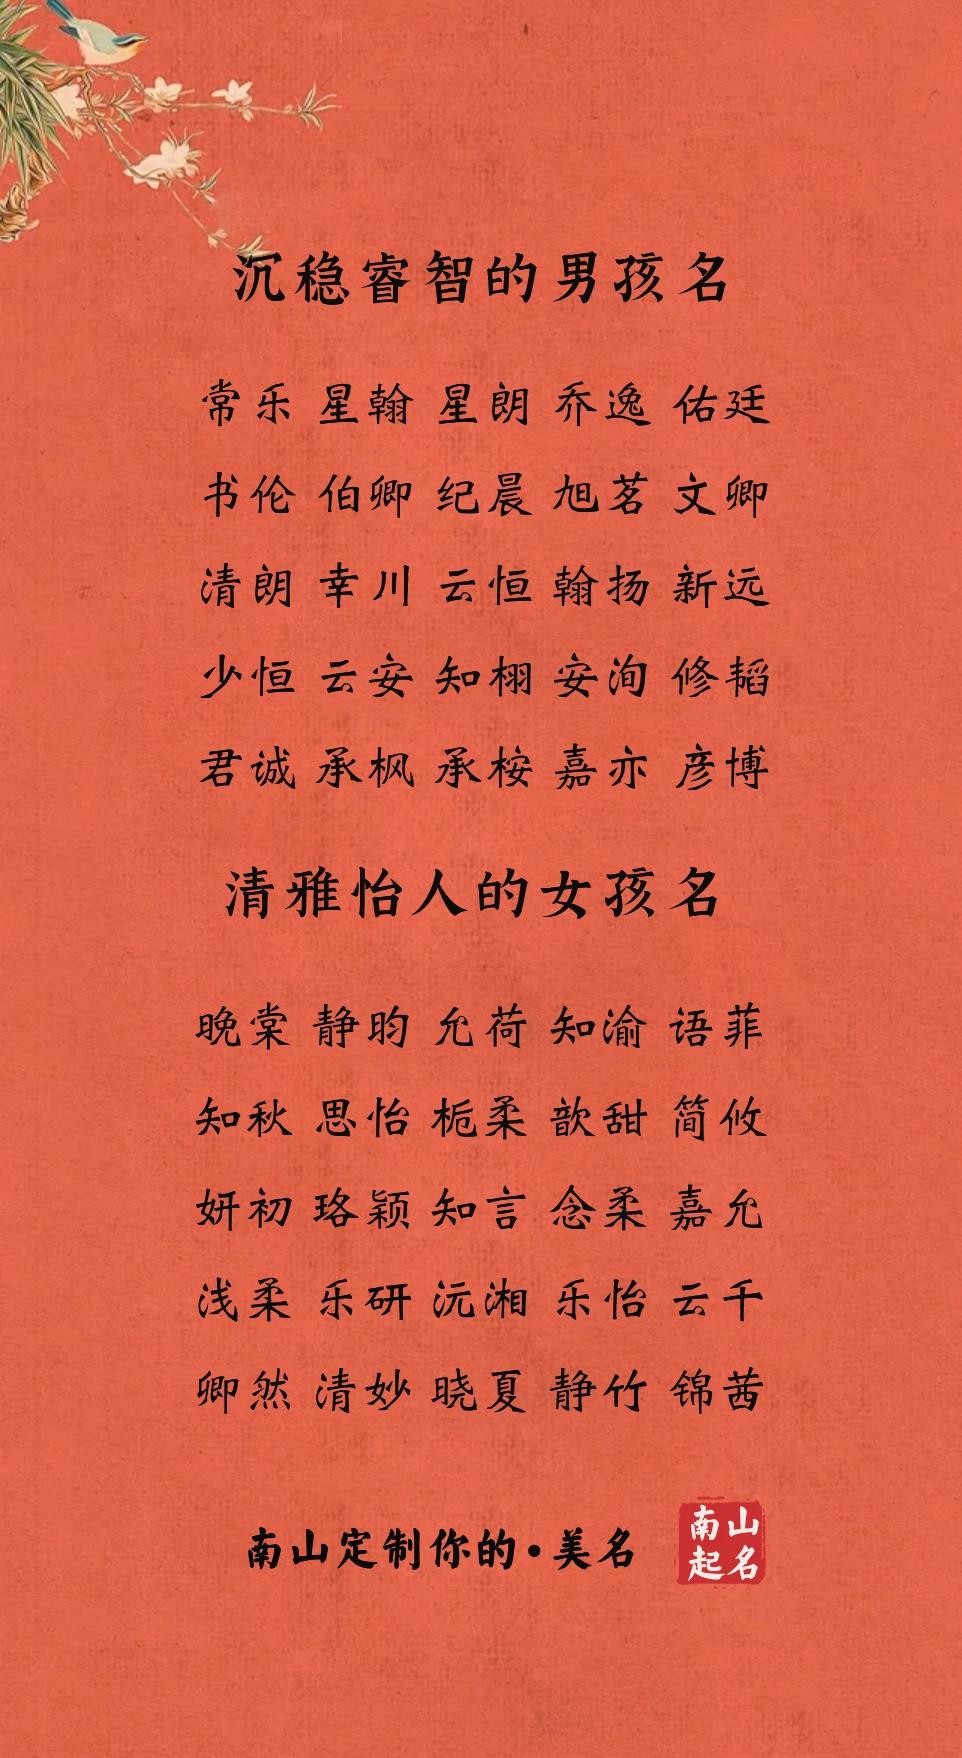 沉稳睿智的男孩名
常乐 星翰 星朗 乔逸 佑廷
书伦 伯卿 纪晨 旭茗 文卿
清朗 幸川 云恒 翰扬 新远
少恒 云安 知栩 安洵 修韬
君诚 承枫 承桉 嘉亦 彦博
清雅怡人的女孩名
晚棠 静昀 允荷 知渝 语菲
知秋 思怡 栀柔 歆甜 简攸
妍初 珞颖 知言 念柔 嘉允
浅柔 乐研 沅湘 乐怡 云千
卿然 清妙 晓夏 静竹 锦茜
南山定制你的·美名
南山
起名